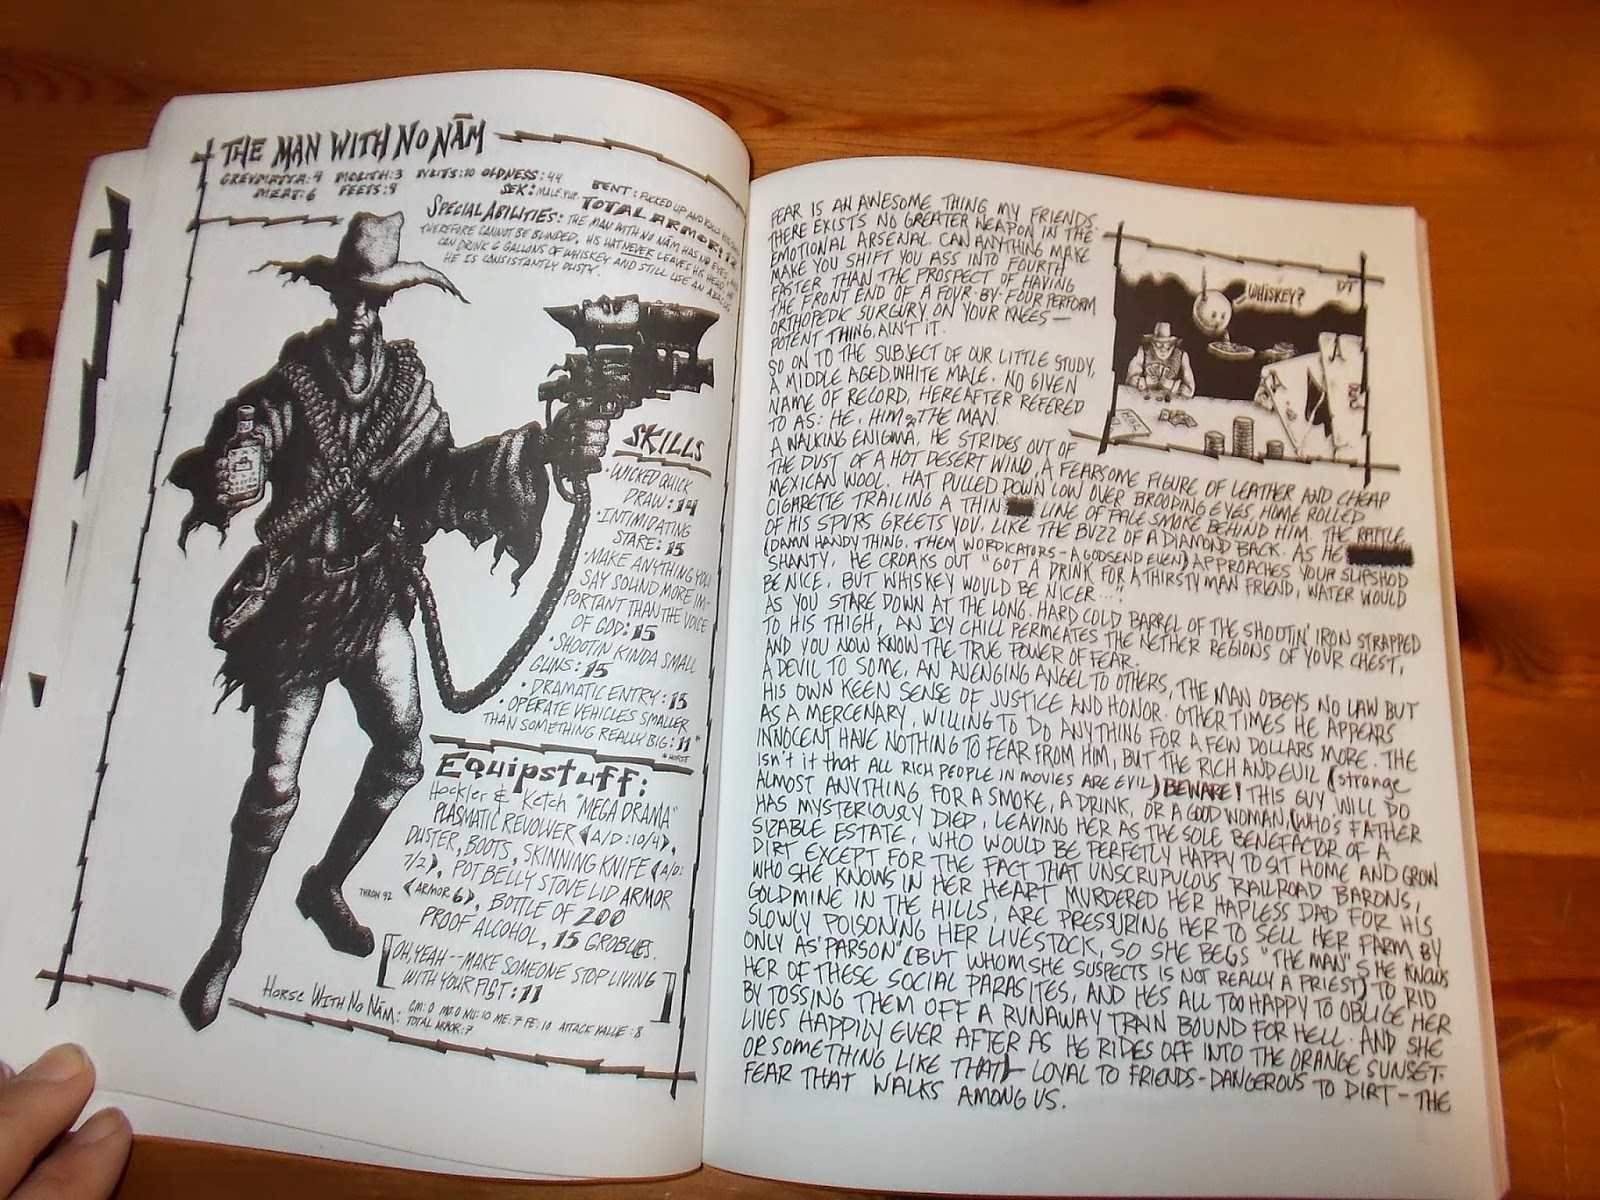 THE MAN WITH NO NĀM
GREYMATTA: 4 MOUTH: 3 NUTS: 10 OLDNESS: 44
MEAT: 6 FEETS: 9 SEK: MALE, YUP.
BENT: FUCKED UP AND
TOTAL ARMOR: 12
SPECIAL ABILITIES: THE MAN WITH NO NĀM HAS NO EYES, AND
THEREFORE CANNOT BE BLINDED, HIS HAT NEVER LEAVES HIS HEAD, HE
CAN DRINK 6 GALLONS OF WHISKEY AND STILL USE AN
HE IS CONSISTANTLY DUSTY.
SKILLS
·WICKED QUICK
DRAW: 14
·INTIMIDATING
STARE: 15
·MAKE ANYTHING YOU
SAY SOUND MORE IM-
PORTANT THAN THE VOICE
OF GOD: 15
·SHOOTIN KINDA SMALL
GUNS: 15
·DRAMATIC ENTRY: 15
·OPERATE VEHICLES SMALLER
THAN SOMETHING REALLY BIG: 11*
*HORSE
Equipstuff:
Heckler & Ketch "MEGA DRAMA"
PLASMATIC REVOLVER (A/D:10/4),
DUSTER, BOOTS, SKINNING KNIFE (A/D:
7/2), POT BELLY STOVE LID ARMOR
(ARMOR 6), BOTTLE OF 200
PROOF ALCOHOL, 15 GROBLIES.
[OH, YEAH--MAKE SOMEONE STOP LIVING
WITH YOUR FIST: 11]
HORSE WITH NO NĀM: GM: 0 MO: 0 NU: 10 ME: 7 FE: 10 ATTACK VALUE: 8
TOTAL ARMOR: 7
FEAR IS AN AWESOME THING MY FRIENDS.
THERE EXISTS NO GREATER WEAPON IN THE
EMOTIONAL ARSENAL. CAN ANYTHING MAKE
MAKE YOU SHIFT YOU ASS INTO FOURTH
FASTER THAN THE PROSPECT OF HAVING
THE FRONT END OF A FOUR-BY-FOUR PERFORM
ORTHOPEDIC SURGURY ON YOUR KNEES—
POTENT THING, AIN'T IT.
SO ON TO THE SUBJECT OF OUR LITTLE STUDY,
A MIDDLE AGED, WHITE MALE. NO GIVEN
NAME OF RECORD, HEREAFTER REFERED
TO AS: HE, HIM & THE MAN.
A WALKING ENIGMA, HE STRIDES OUT OF
THE DUST OF A HOT DESERT WIND, A FEARSOME FIGURE OF LEATHER AND CHEAP
MEXICAN WOOL. HAT PULLED DOWN LOW OVER BROODING EYES, HOME ROLLED
CIGARETTE TRAILING A THIN LINE OF PALE SMOKE BEHIND HIM. THE RATTLE
OF HIS SPURS GREETS YOU, LIKE THE BUZZ OF A DIAMOND BACK. AS HE
(DAMN HANDY THING. THEM WORDICATORS - A GODSEND EVEN) APPROACHES YOUR SLIPSHOD
SHANTY, HE CROAKS OUT "GOT A DRINK FOR A THIRSTY MAN FRIEND, WATER WOULD
BE NICE, BUT WHISKEY WOULD BE NICER...".
AS YOU STARE DOWN AT THE LONG, HARD COLD BARREL OF THE SHOOTIN' IRON STRAPPED
TO HIS THIGH, AN ICY CHILL PERMEATES THE NETHER REGIONS OF YOUR CHEST,
AND YOU NOW KNOW THE TRUE POWER OF FEAR.
A DEVIL TO SOME, AN AVENGING ANGEL TO OTHERS, THE MAN OBEYS NO LAW BUT
HIS OWN KEEN SENSE OF JUSTICE AND HONOR. OTHER TIMES HE APPEARS
AS A MERCENARY, WILLING TO DO ANYTHING FOR A FEW DOLLARS MORE. THE
INNOCENT HAVE NOTHING TO FEAR FROM HIM, BUT THE RICH AND EVIL (strange
isn't it that ALL RICH PEOPLE IN MOVIES ARE EVIL) BEWARE! THIS GUY WILL DO
ALMOST ANYTHING FOR A SMOKE, A DRINK, OR A GOOD WOMAN, (WHO'S FATHER
HAS MYSTERIOUSLY DIED, LEAVING HER AS THE SOLE BENEFACTOR OF A
SIZABLE ESTATE, WHO WOULD BE PERFETLY HAPPY TO SIT HOME AND GROW
DIRT EXCEPT FOR THE FACT THAT UNSCRUPULOUS RAILROAD BARONS,
WHO SHE KNOWS IN HER HEART MURDERED HER HAPLESS DAD FOR HIS
GOLDMINE IN THE HILLS, ARE PRESSURING HER TO SELL HER FARM BY
SLOWLY POISONING HER LIVESTOCK, SO SHE BEGS "THE MAN" SHE KNOWS
ONLY AS "PARSON" (BUT WHOM SHE SUSPECTS IS NOT REALLY A PRIEST) TO RID
HER OF THESE SOCIAL PARASITES, AND HES ALL TOO HAPPY TO OBLIGE HER
BY TOSSING THEM OFF A RUNAWAY TRAIN BOUND FOR HELL. AND SHE
LIVES HAPPILY EVER AFTER AS HE RIDES OFF INTO THE ORANGE SUNSET.
OR SOMETHING LIKE THAT) - LOYAL TO FRIENDS - DANGEROUS TO DIRT - THE
FEAR THAT WALKS AMONG US.
WHISKEY?
DT
A
A